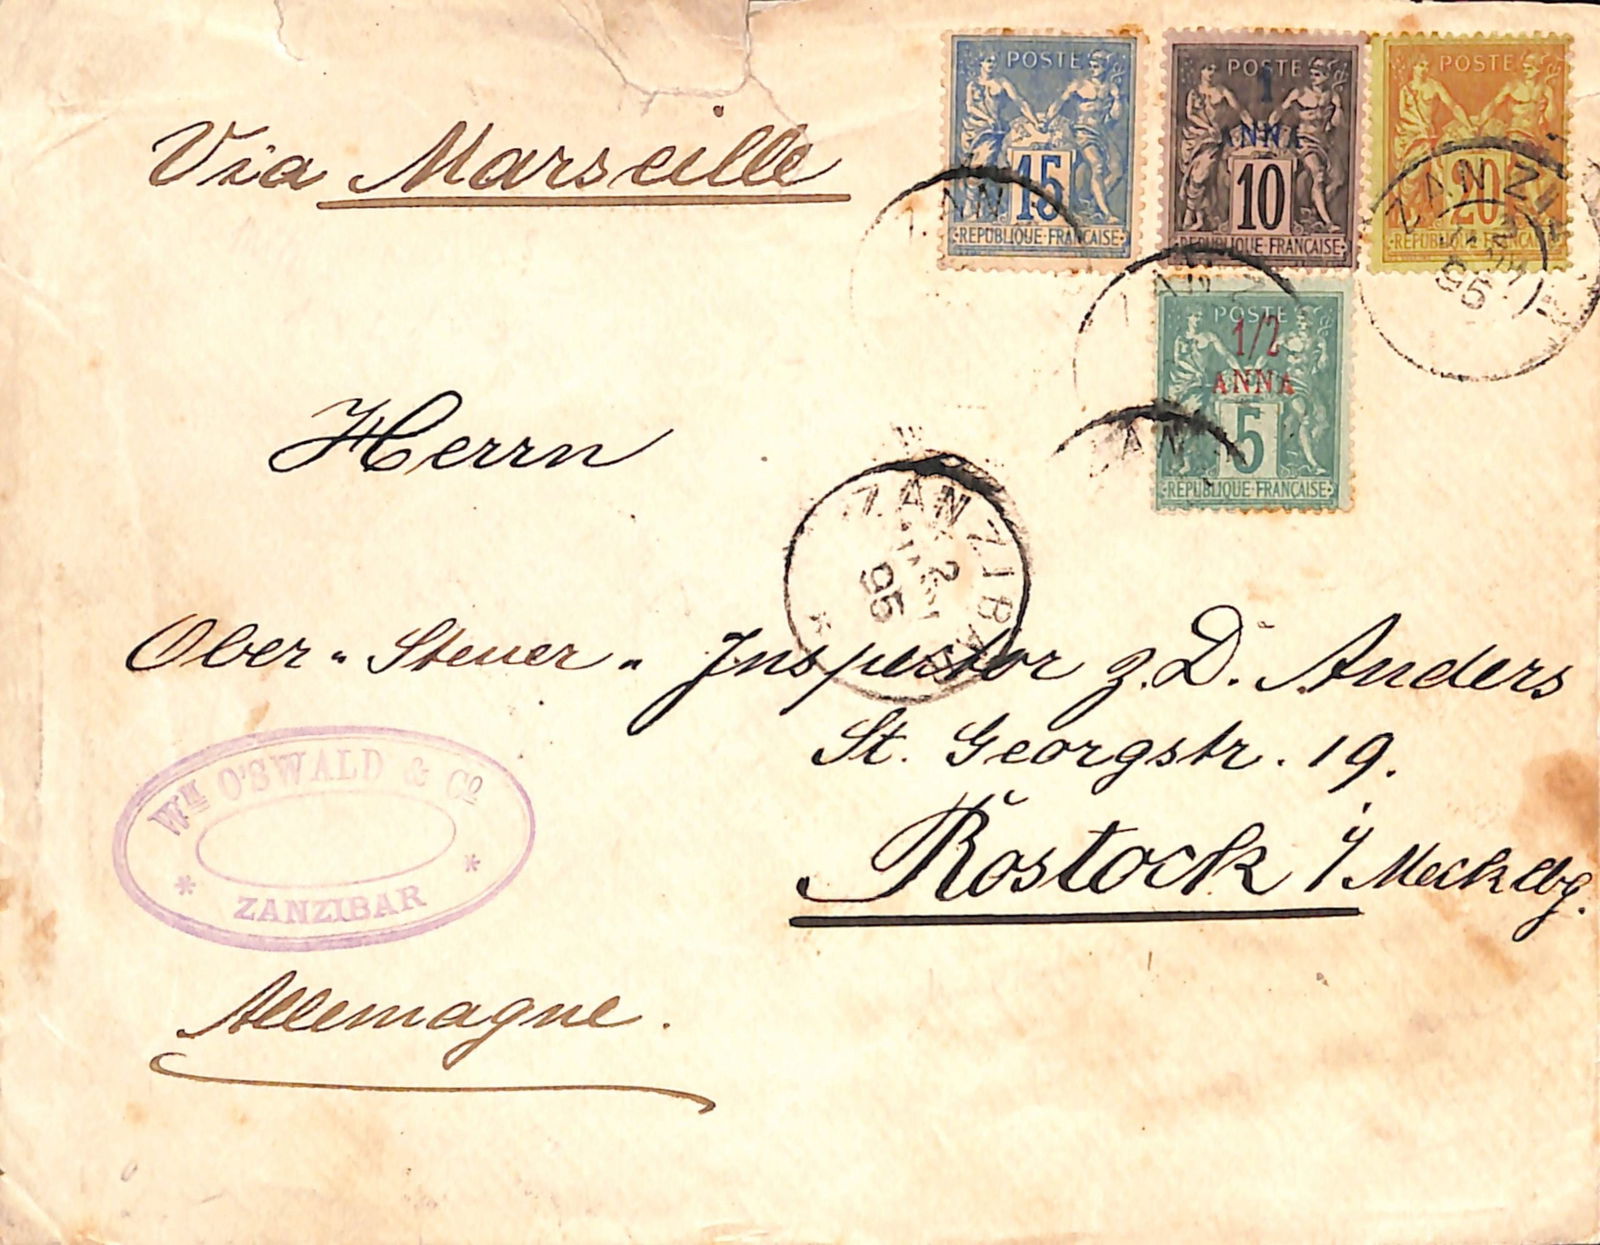 Via Marseille
POSTE
15
REPUBLIQUE FRANÇAISE
POSTE
1
ANNA
10
REPUBLIQUE FRANÇAISE
POSTE
20
REPUBLIQUE FRANÇAISE
ZAN
ZANZIB
95
POSTE
1/2
ANNA
5
REPUBLIQUE FRANÇAISE
ZAN
ZAN
Herrn
ZANZIBAR
2
95
Ober-Steuer-Inspektor z.D. Anders
St. Georgstr. 19.
Rostock i/Mecklbg.
WM O'SWALD & Co
* ZANZIBAR *
Allemagne.